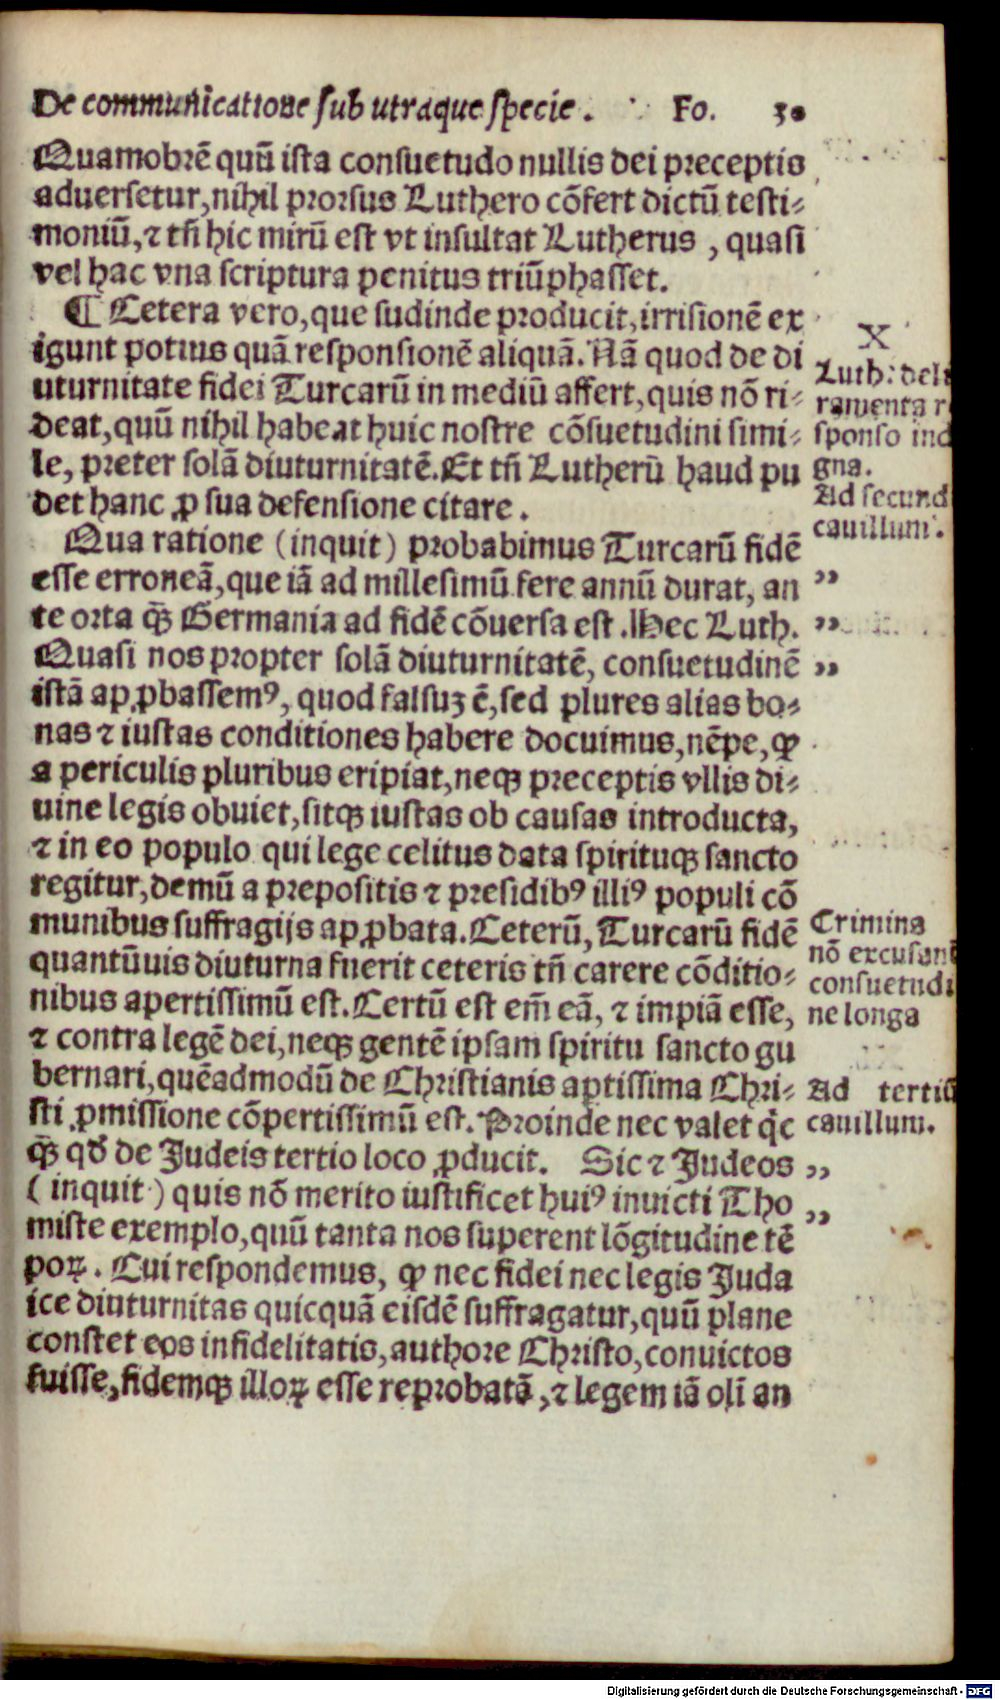 De communicatione sub utraque specie. Fo. 30
Quamobrē quū ista consuetudo nullis dei preceptis
aduersetur, nihil prorsus Luthero cōfert dictū testi-
moniū, ⁊ tn̄ hic mirū est vt insultat Lutherus, quasi
vel hac vna scriptura penitus triūphasset.
¶ Cetera vero, que sudinde producit, irrisionē ex
igunt potius quā responsionē aliquā. Nā quod de di
uturnitate fidei Turcarū in mediū affert, quis nō ri-
deat, quū nihil habeat huic nostre cōsuetudini simi-
le, preter solā diuturnitatē. Et tn̄ Lutherū haud pu
det hanc ꝓ sua defensione citare.
Qua ratione (inquit) probabimus Turcarū fidē
esse erroneā, que iā ad millesimū fere annū durat, an
te orta ꝙ̄ Germania ad fidē cōuersa est. Hec Luth.
Quasi nos propter solā diuturnitatē, consuetudinē
istā apꝓbassemꝰ, quod falsuꝫ ē, sed plures alias bo-
nas ⁊ iustas conditiones habere docuimus, nēpe, ꝙ
a periculis pluribus eripiat, neqꝫ preceptis vllis di-
uine legis obuiet, sitqꝫ iustas ob causas introducta,
⁊ in eo populo qui lege celitus data spirituqꝫ sancto
regitur, demū a prepositis ⁊ presidibꝰ illiꝰ populi cō
munibus suffragijs apꝓbata. Ceterū, Turcarū fidē
quantūuis diuturna fuerit ceteris tn̄ carere cōditio-
nibus apertissimū est. Certū est em̄ eā, ⁊ impiā esse,
⁊ contra legē dei, neqꝫ gentē ipsam spiritu sancto gu
bernari, quēadmodū de Christianis aptissima Chri-
sti ꝓmissione cōpertissimū est. Proinde nec valet qͥc
ꝙ̄ qđ de Judeis tertio loco ꝓducit. Sic ⁊ Judeos
(inquit) quis nō merito iustificet huiꝰ inuicti Tho
miste exemplo, quū tanta nos superent lōgitudine tē
poꝝ. Cui respondemus, ꝙ nec fidei nec legis Juda
ice diuturnitas quicquā eisdē suffragatur, quū plane
constet eos infidelitatis, authore Christo, conuictos
fuisse, fidemqꝫ illoꝝ esse reprobatā, ⁊ legem iā oli an
X
Luth: deli
ramenta r
sponso ind
gna.
Ad secund
cauillum.
”
”
”
Crimina
nō excusant
consuetudi
ne longa
Ad tertiū
cauillum.
”
”
Digitalisierung gefördert durch die Deutsche Forschungsgemeinschaft - DFG